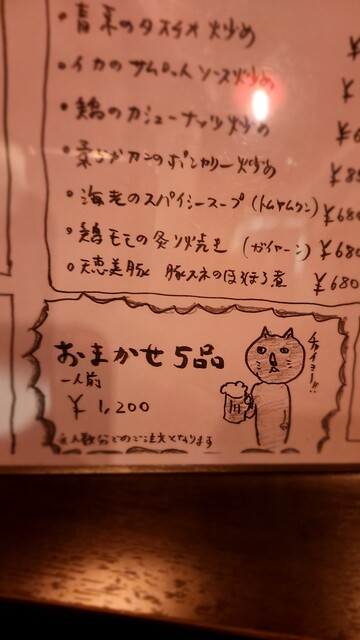 ・青菜のタスイオ炒め
・イカのサムロットソース炒め ¥
・鶏のカシューナッツ炒め ¥6
ガンのポンカリー炒め ¥8
・海老のスパイシースープ(トムヤムクン) ¥680
・鶏モモの炙り焼き (ガイヤーン) ¥680
・天恵美豚 豚スネのほほろ煮 ¥680
おまかせ5品
一人前
¥ 1,200
※人数分でのご注文となります
チョイヨー!!